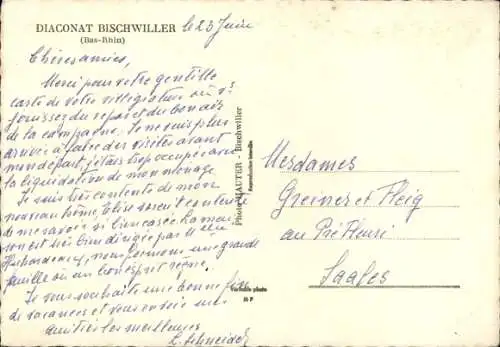 DIACONAT BISCHWILLER
(Bas-Rhin)
le 23 Juin
Chères amies,
Merci pour votre gentille
carte de votre villégiature où vs
jouissez du repos et du bon air
de la campagne. Je ne suis plus
arrivée à faire des visites avant
mon départ, j'étais trop occupée avec
la liquidation de mon ménage
Je suis très contente de mon
nouveau home, Elise aussi est contente
de me savoir si bien casée. La mai-
son est très bien dirigée par
nous formons une grande
famille où un bon esprit règne.
Je vous souhaite une bonne fin
de vacances et vous envoie mes
amitiés les meilleures
L. Schneider
Photo HAUTER - Bischwiller
Reproduction interdite
Véritable photo
Mesdames
Greiner et Fleig
au Pré Fleuri
Saales